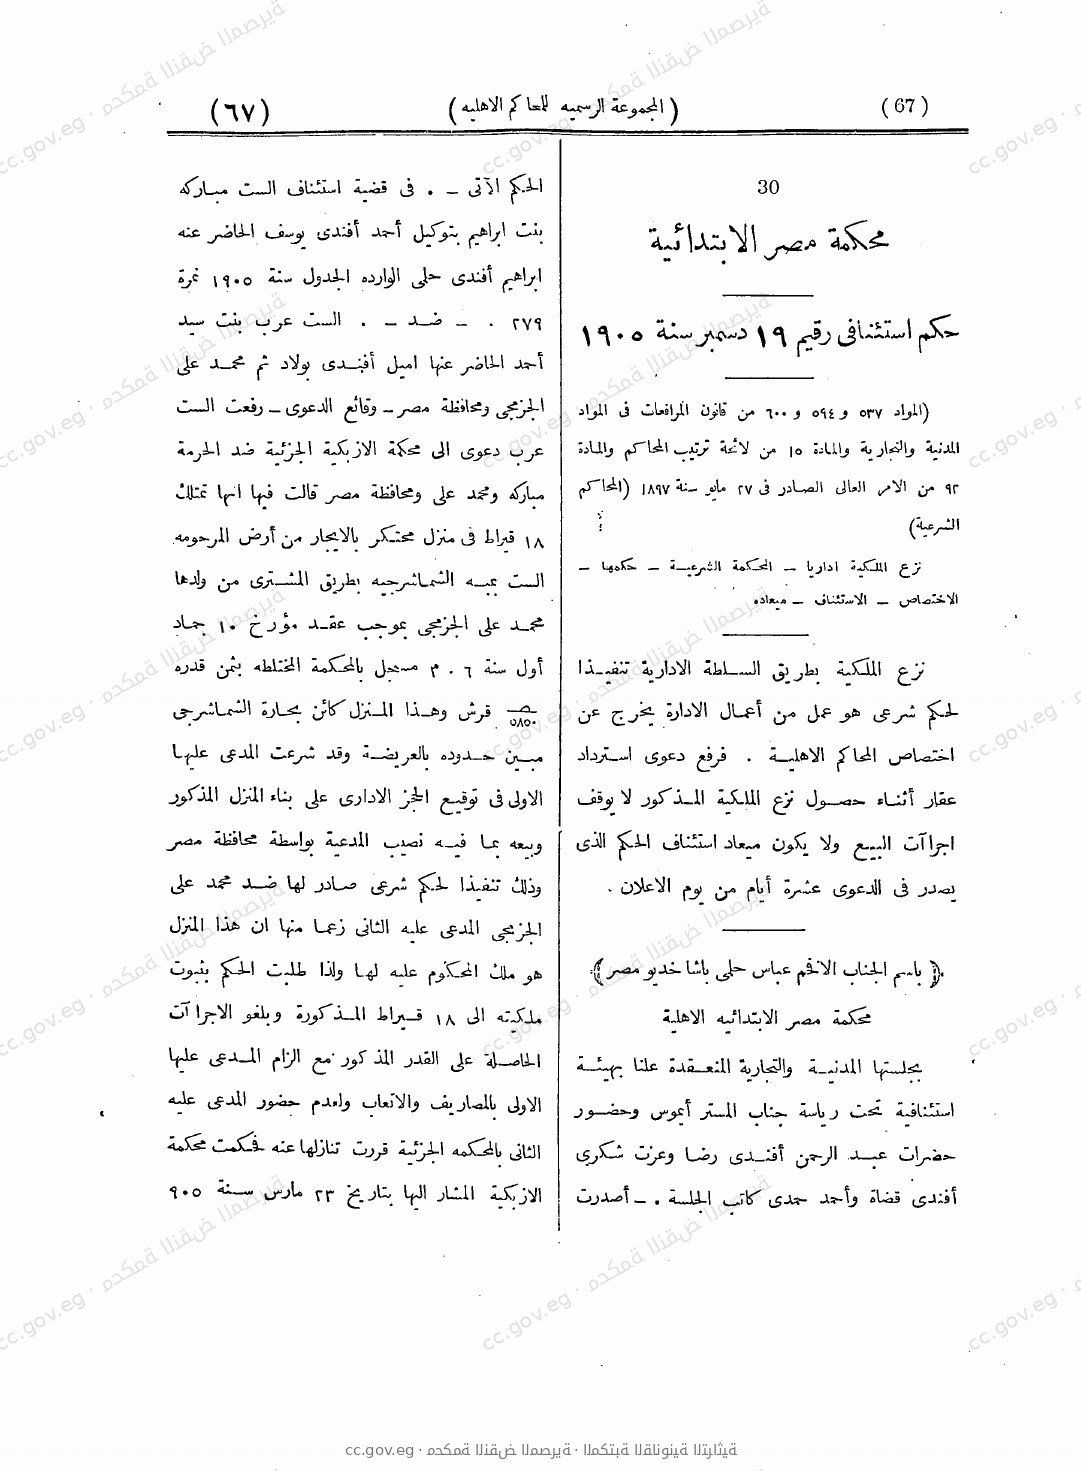 (67)
(المجموعة الرسميه للمحاكم الاهليه)
(٦٧)
30
محكمة مصر الابتدائية
حكم استئنافى رقيم ١٩ دسمبر سنة ١٩٠٥
(المواد ٥٣٧ و ٥٩٤ و ٦٠٠ من قانون المرافعات فى المواد
المدنية والتجارية والمادة ١٥ من لائحة ترتيب المحاكم والمادة
٩٢ من الامر العالى الصادر فى ٢٧ مايو سنة ١٨٩٧ (المحاكم
الشرعية)
نزع الملكية اداريا – المحكمة الشرعيـة – حكمها –
الاختصاص – الاستئناف – ميعاده
نزع الملكية بطريق السـلطة الادارية تنفيـذا
لحكم شرعى هو عمل من أعمال الادارة يخرج عن
اختصاص المحاكم الاهليـة . فرفع دعوى اسـترداد
عقار أثنـاء حصـول نزع الملكية المـذكور لا يوقف
اجراآت البيـع ولا يكون ميعاد استئناف الحكم الذى
يصدر فى الدعوى عشرة أيام من يوم الاعلان .
﴿ باسم الجناب الافخم عباس حلمى باشا خديو مصر ﴾
محكمة مصر الابتدائيه الاهلية
بجلستها المدنيـة والتجارية المنعـقدة علنا بهيئـة
استئنافية تحت رياسة جناب المستر أيموس وحضـور
حضرات عبـد الرحمن أفنـدى رضا وعزت شكرى
أفندى قضاة وأحمد حمدى كاتب الجلسة . – أصدرت
الحكم الآتى – . فى قضية استئناف الست مبـاركه
بنت ابراهيم بتوكيل أحمد أفندى يوسف الحاضر عنه
ابراهيم أفندى حلمى الوارده الجدول سنة ١٩٠٥ نمرة
٢٧٩ . – ضـد – . الست عرب بنت سيد
أحمد الحاضر عنها اميل أفنـدى بولاد ثم محمـد على
الجزمجى ومحافظة مصر – وقائع الدعوى – رفعت الست
عرب دعوى الى محكمة الازبكية الجزئية ضد الحرمة
مباركه ومحمد على ومحافظة مصر قالت فيها انها تمتلك
١٨ قيراط فى منزل محتكر بالايجار من أرض المرحومه
الست بمبـه الشماشرجيه بطريق المشـترى من ولدها
محمـد على الجزمجى بموجب عقـد مؤرخ ١٠ جماد
أول سنة ٦ . م مسجل بالمحكمة المختلطه بثمن قدره
٥٨٥٠ قرش وهـذا المـنزل كائن بحارة الشماشرجى
مبـين حـدوده بالعريضـة وقد شرعت المدعى عليهـا
الاولى فى توقيع الحجز الادارى على بناء المنزل المذكور
وبيعه بمـا فيـه نصيب المدعية بواسطة محافظة مصر
وذلك تنفيذا لحكم شرعى صادر لها ضـد محمد على
الجزمجى المدعى عليه الثانى زعمـا منها ان هذا المنزل
هو ملك المحكوم عليه لهـا ولذا طلبت الحكم بثبوت
ملكيته الى ١٨ قـيراط المـذكورة وبلغو الاجراآت
الحاصـلة على القدر المذكور مع الزام المـدعى عليها
الاولى بالمصاريف والاتعاب ولعدم حضور المدعى عليه
الثانى بالمحكمه الجزئية قررت تنازلها عنه فحكمت محكمة
الازبكية المشار اليها بتاريخ ٢٣ مارس سـنة ٩٠٥
cc.gov.eg · محكمة النقض المصرية · المكتبة القانونية التراثية